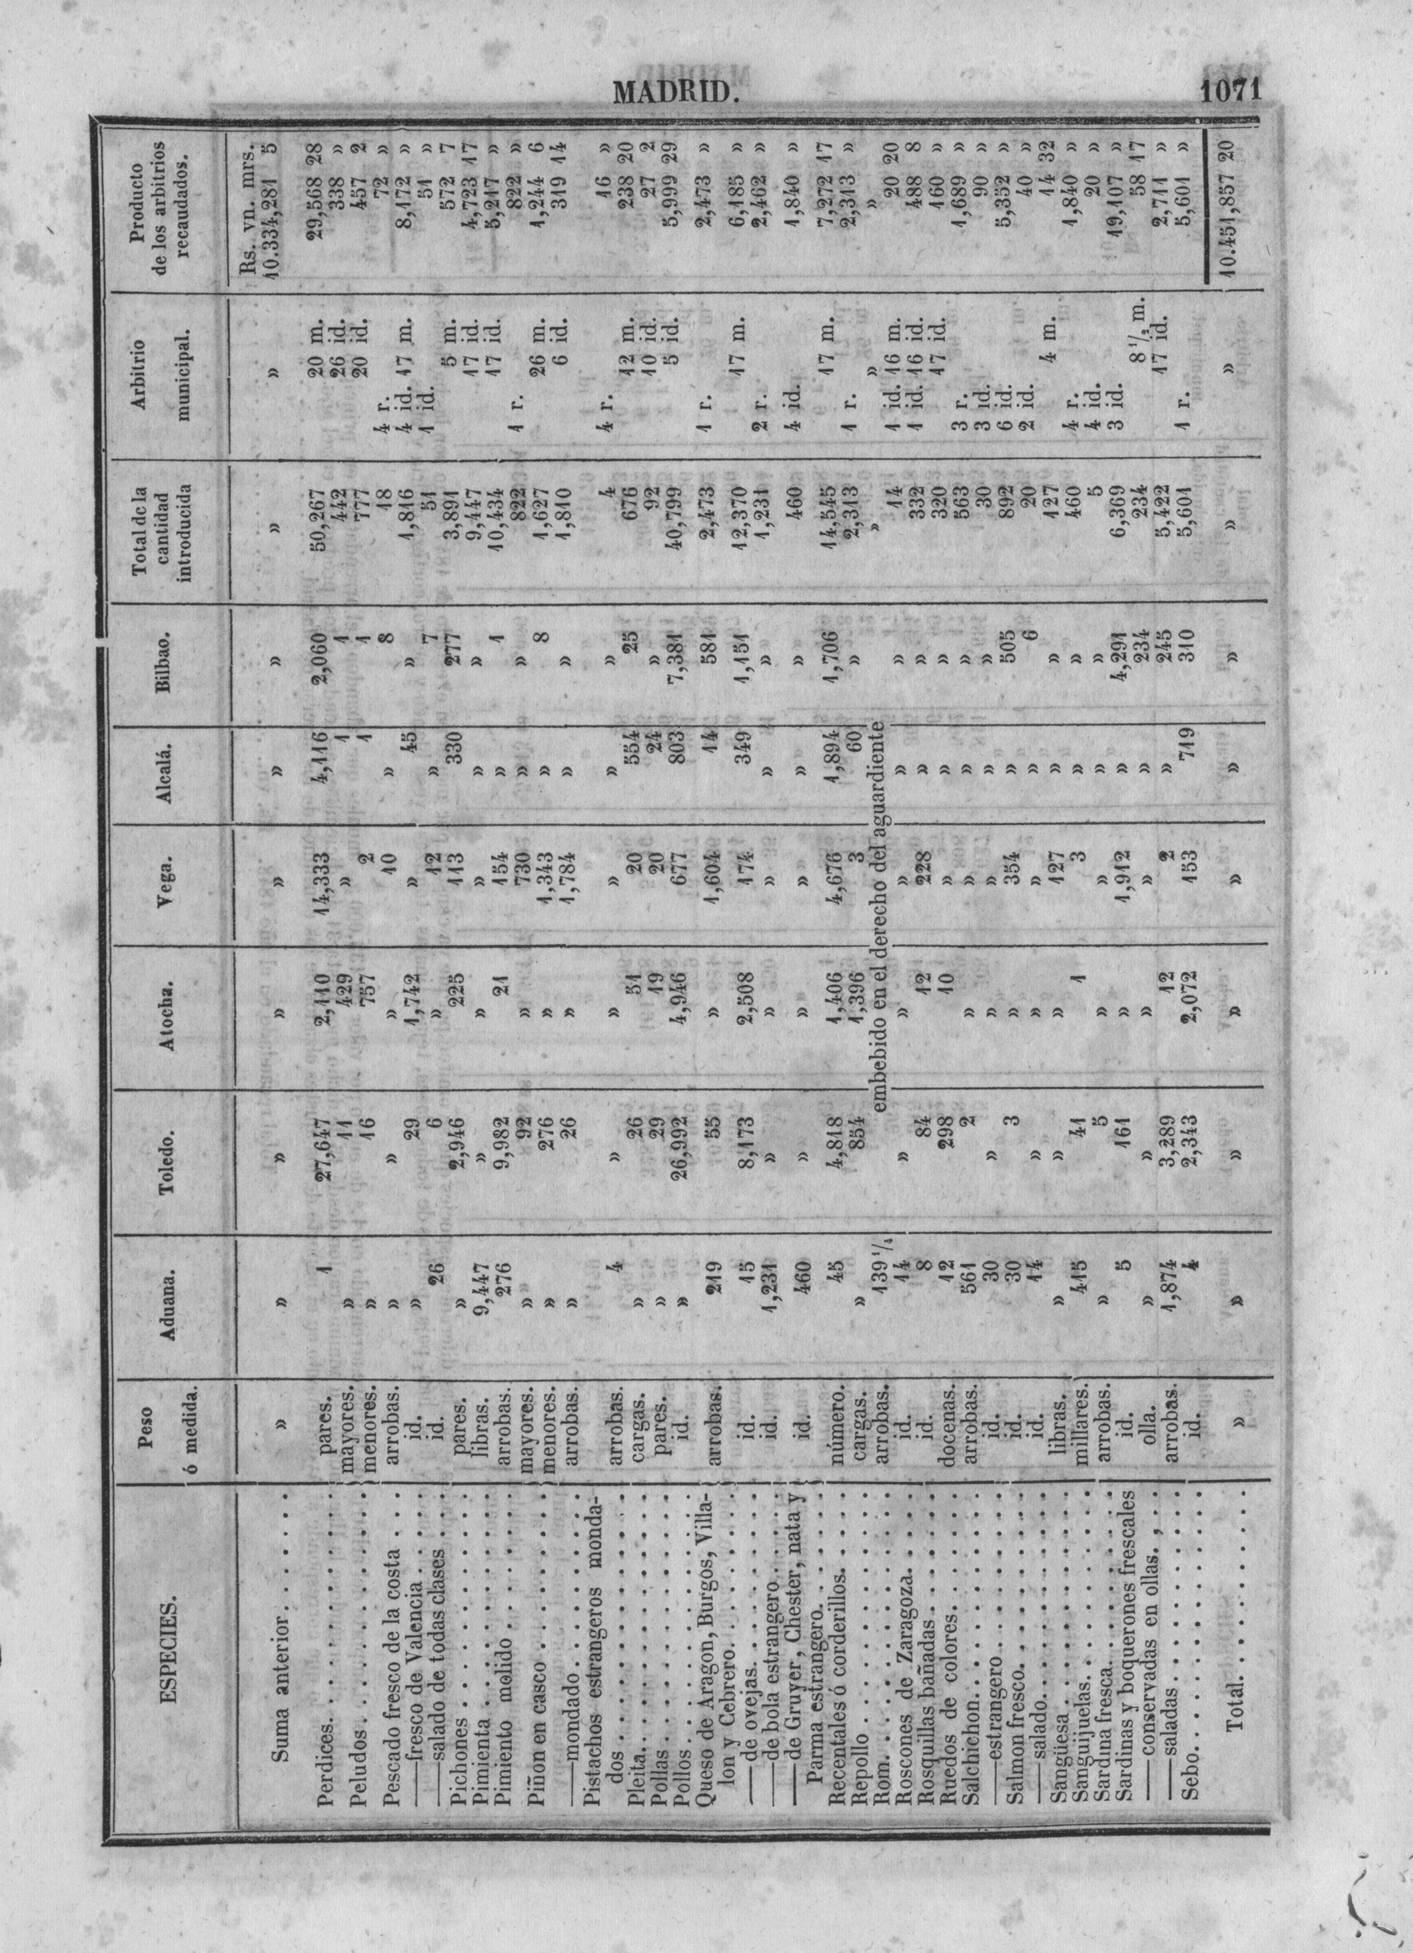 MADRID. 1071
ESPECIES. Peso ó medida. Aduana. Toledo. Atocha. Vega. Alcalá. Bilbao. Total de la cantidad introducida Arbitrio municipal. Producto de los arbitrios recaudados.
Rs. vn. mrs.
Suma anterior...... » » » » » » » » » 10.334,281 5
Perdices........ pares. 1 27,647 2,110 14,333 4,116 2,060 50,267 20 m. 29,568 28
Peludos........ mayores. » 11 429 » 1 1 442 26 id. 338 »
menores. » 16 757 2 1 1 777 20 id. 457 2
Pescado fresco de la costa... arrobas. » » » 10 » 8 18 4 r. 72 »
——fresco de Valencia.... id. » 29 1,742 » 45 » 1,816 4 id. 17 m. 8,172 »
——salado de todas clases... id. 26 6 » 12 » 7 51 1 id. 51 »
Pichones........ pares. » 2,946 225 113 330 277 3,891 5 m. 572 7
Pimienta........ libras. 9,447 » » » » » 9,447 17 id. 4,723 17
Pimiento molido...... arrobas. 276 9,982 21 154 » 1 10,434 17 id. 5,217 »
Piñon en casco...... mayores. » 92 » 730 » » 822 1 r. 822 »
menores. » 276 » 1,343 » 8 1,627 26 m. 1,244 6
——mondado...... arrobas. » 26 » 1,784 » » 1,810 6 id. 319 14
Pistachos estrangeros monda-
dos......... arrobas. 4 » » » » » 4 4 r. 16 »
Pleita......... cargas. » 26 51 20 554 25 676 12 m. 238 20
Pollas......... pares. » 29 19 20 24 » 92 10 id. 27 2
Pollos......... id. » 26,992 4,946 677 803 7,381 40,799 5 id. 5,999 29
Queso de Aragon, Burgos, Villa-
lon y Cebrero....... arrobas. 219 55 » 1,604 14 581 2,473 1 r. 2,473 »
——de ovejas....... id. 15 8,173 2,508 174 349 1,151 12,370 17 m. 6,185 »
——de bola estrangero.... id. 1,231 » » » » » 1,231 2 r. 2,462 »
——de Gruyer, Chester, nata y
Parma estrangero..... id. 460 » » » » » 460 4 id. 1,840 »
Recentales ó corderillos..... número. 45 4,818 1,406 4,676 1,894 1,706 14,545 17 m. 7,272 17
Repollo........ cargas. » 854 1,396 3 60 » 2,313 1 r. 2,313 »
Rom......... arrobas. 139 1/4 embebido en el derecho del aguardiente » » »
Roscones de Zaragoza.... id. 14 » » » » » 14 1 id. 16 m. 20 20
Rosquillas bañadas...... id. 8 84 12 228 » » 332 1 id. 16 id. 488 8
Ruedos de colores...... docenas. 12 298 10 » » » 320 17 id. 160 »
Salchichon........ arrobas. 561 2 » » » » 563 3 r. 1,689 »
——estrangero...... id. 30 » » » » » 30 3 id. 90 »
Salmon fresco....... id. 30 3 » 354 » 505 892 6 id. 5,352 »
——salado........ id. 14 » » » » 6 20 2 id. 40 »
Sangüesa........ libras. » » » 127 » » 127 4 m. 14 32
Sanguijuelas....... millares. 415 41 1 3 » » 460 4 r. 1,840 »
Sardina fresca....... arrobas. » 5 » » » » 5 4 id. 20 »
Sardinas y boquerones frescales id. 5 161 » 1,912 » 4,291 6,369 3 id. 19,107 »
——conservadas en ollas.... olla. » » » » » 234 234 8 1/2 m. 58 17
——saladas....... arrobas. 1,874 3,289 12 2 » 245 5,422 17 id. 2,711 »
Sebo......... id. 4 2,343 2,072 153 719 310 5,601 1 r. 5,601 »
Total........ » » » » » » » » » 10.451,857 20